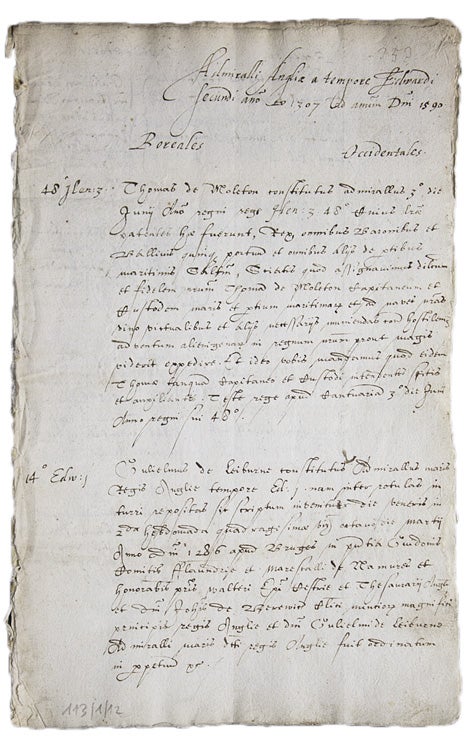 Admiralli Angliæ a tempore Edwardi
secundi ano 1307 ad annum Dm 1590
Boreales
Occidentales.
48 Hen: 3.
Thomas de Moleton constitutus admirallus 3º die
Junij Ano regni regs Hen: 3 48º
patentes hæ fuerunt, Rex omnibus Baronibus et
Ballivis quinq portuum et omnibus alijs de ptibus
maritimis Saltm, Sciatis quod assignavimus dilectum
et fidelem nrum Thomā de Moleton Capitaneum et
Custodem maris et ptium maritimarum et
et alijs necessarijs
adventum alienigenarum in regnum nrum prout magis
viderit expedire. Et ideo vobis mandamus quod eidem
Thomæ tanquā Capitaneo et Custodi intendentes sitis
et auxiliantes. Teste rege apud Cantuariā 3º die Junij
Anno regni sui 48º.
14º Edw: 1
Gulielmus de Leiburne constitutus Admirallus maris
Regis Angliæ tempore Ed. 1. nam inter rotulas in
turri repositas sic scriptum inventum die veneris in
2da hebdomada quadragesimæ martij
Anno dm 1286 apud Bruges in Guidonis
Comitis Flaundriæ et Marescalli de Namures et
honorabilis pris Walteri Epi Cestriæ et Thesaurarij Angliæ
et dm Johis de Berewic
regis Angliæ et dm Gulielmi de Leiburne
Admiralli maris dti regis Angliæ fuit ordinatum
in ppetuum
113/1/12